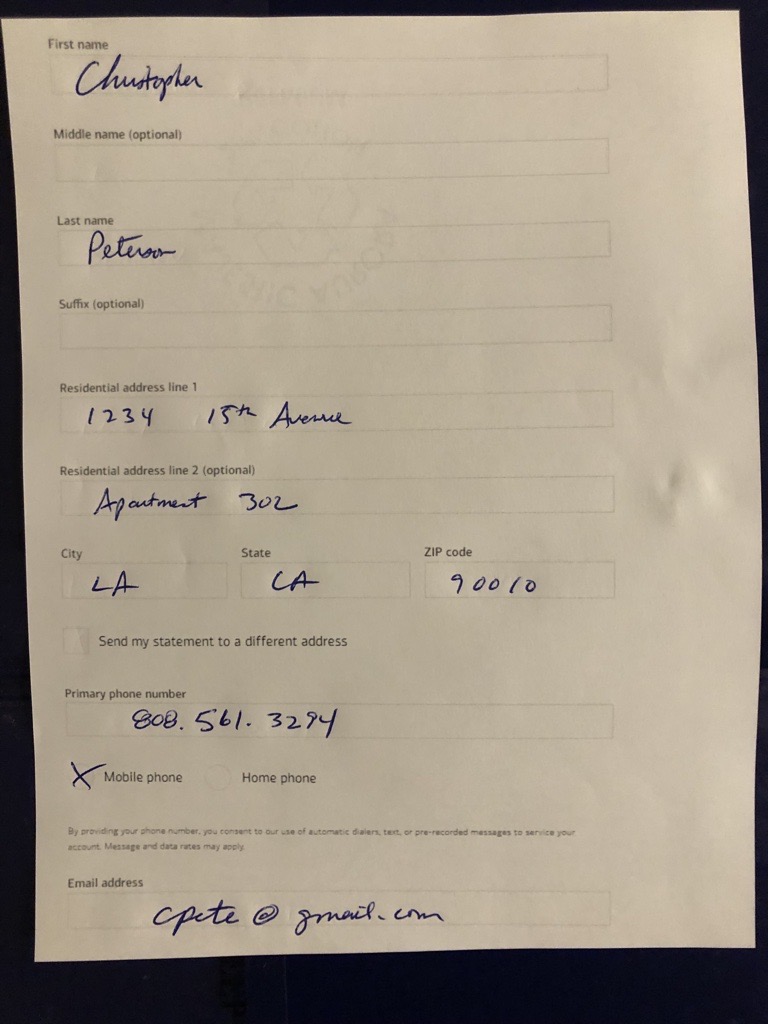 First name
Christopher
Middle name (optional)
Last name
Peterson
Suffix (optional)
Residential address line 1
1234 15th Avenue
Residential address line 2 (optional)
Apartment 302
City State ZIP code
LA CA 90010
Send my statement to a different address
Primary phone number
808. 561. 3294
Mobile phone Home phone
By providing your phone number, you consent to our use of automatic dialers, text, or pre-recorded messages to service your
account. Message and data rates may apply.
Email address
cpete @ gmail.com